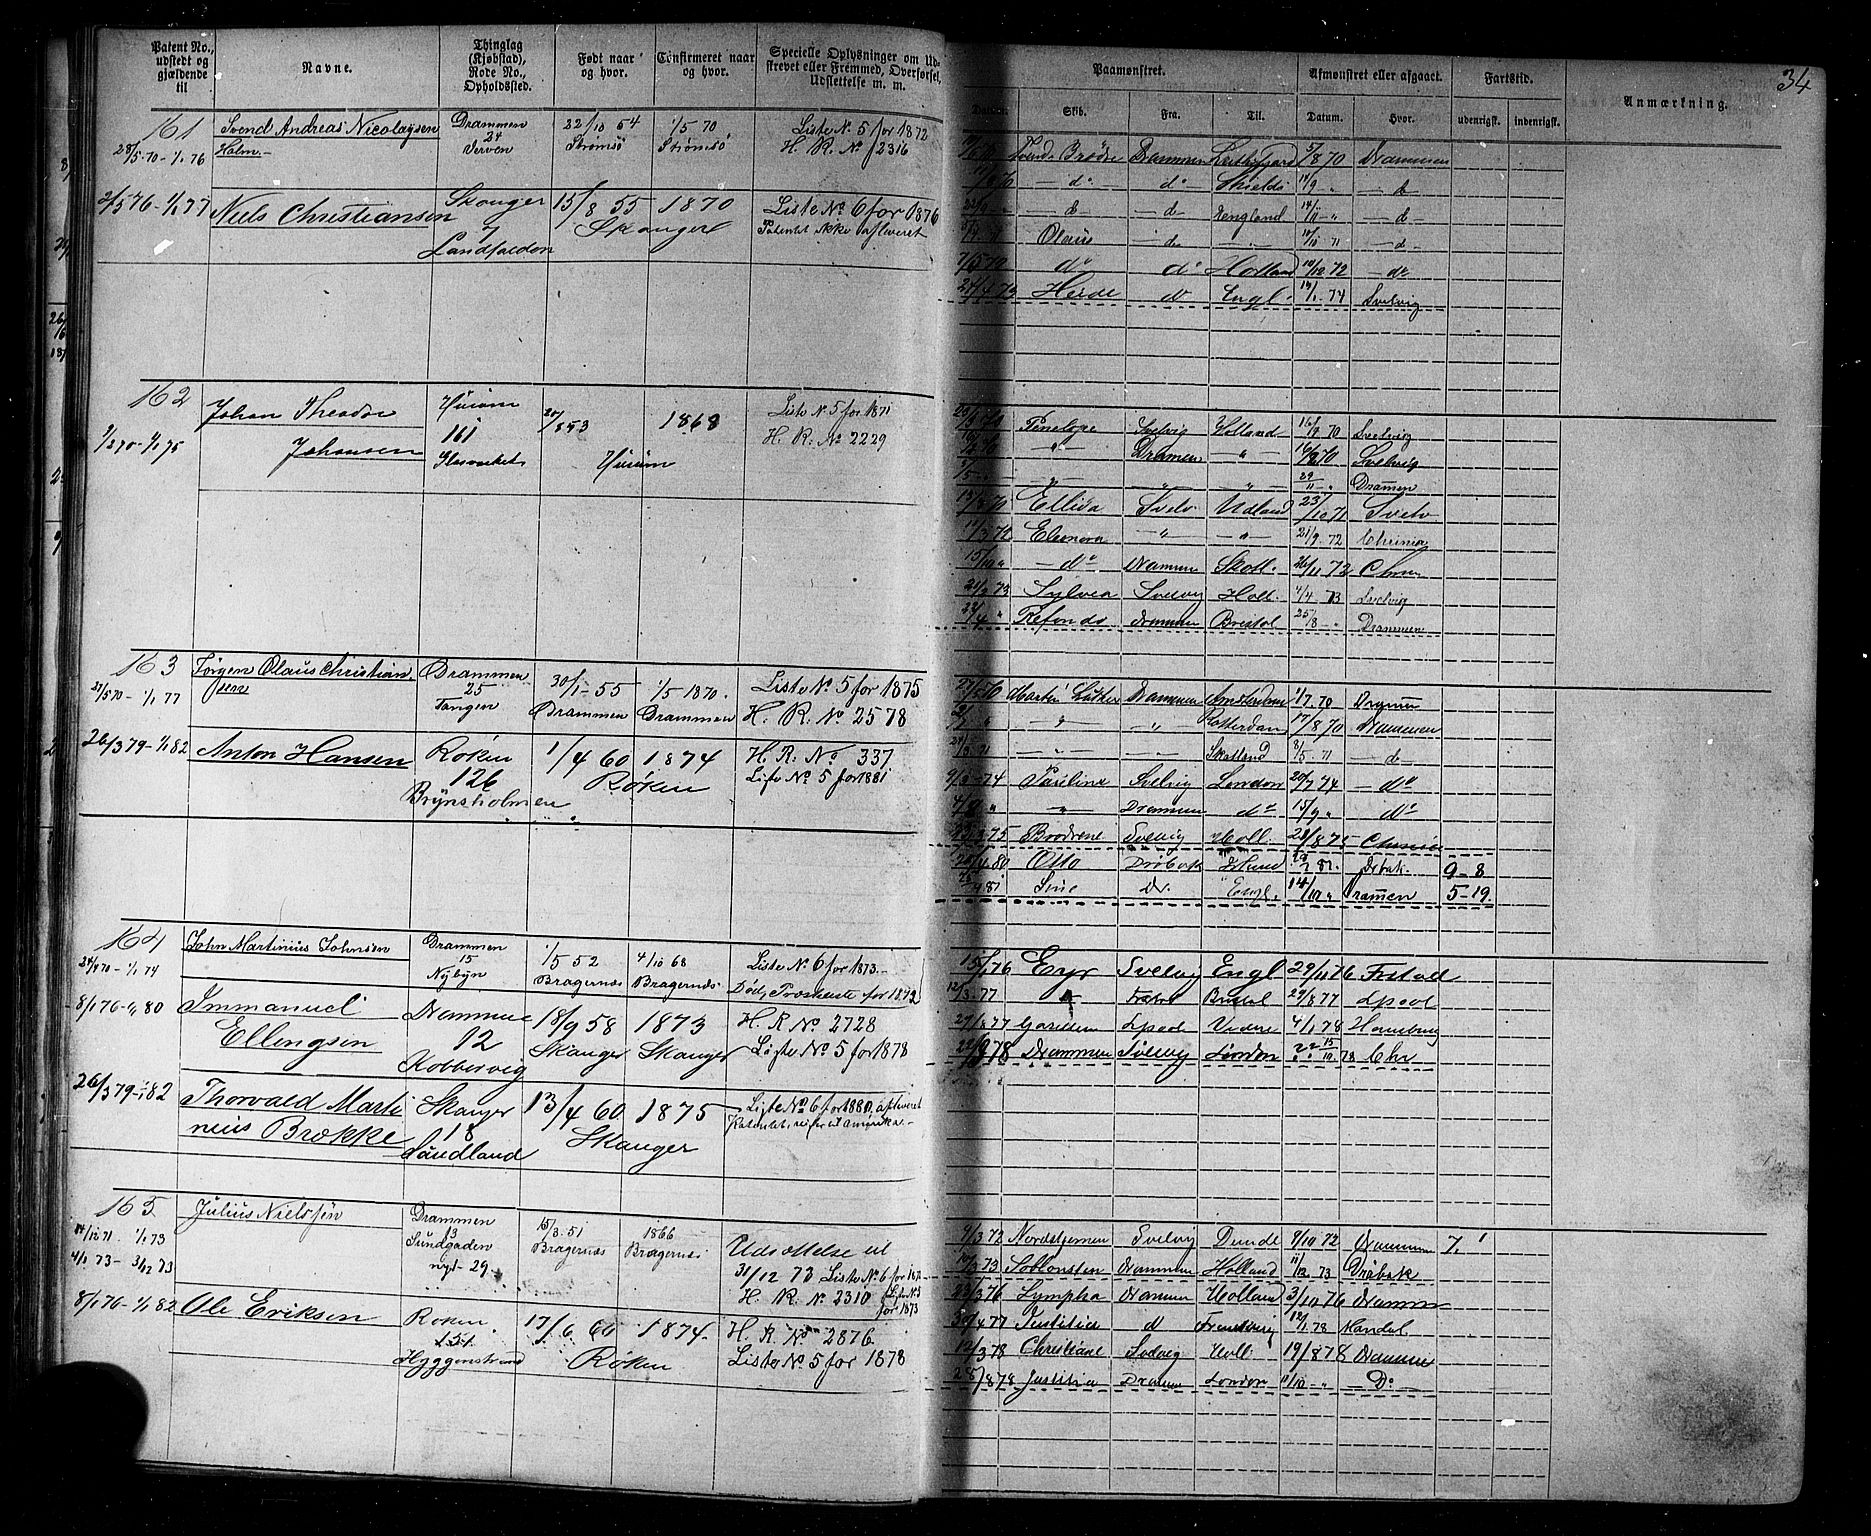 Patent No., udstedt og gjældende til
Navne.
Thinglag (Kjøbstad), Rode No., Opholdssted.
Født naar og hvor.
Confirmeret naar og hvor.
Specielle Oplysninger om Udskrevet eller Fremmed, Overførsel, Udslettelse m. m.
Paamønstret.
Afmønstret eller afgaaet.
Fartstid.
Anmærkning.
34
Datum.
Skib.
Fra.
Til.
Datum.
Hvor.
udenrigsk.
indenrigsk.
161
28/5 70 - 1/1 76
Svend Andreas Nicolaysen
Holm.
Drammen
24
Verven
22/10 54
Strømsö
1/5 70
Strømsö
Liste N. 5 for 1872
H. R. No 2316
2/5 76 - 1/1 77
Niels Christiansen
Skouger
7
15/8 55
Skouger
1870
Liste No 6 for 1876
Patentet ikke afleveret
Brödre Drammen 5/8 70 Drammen
do do Shields 14/9 " do
do do England do
Olaus do 10/10 71 do
7/5 72 do do Holland 10/12 72 do
24/4 73 do Engl. 14/1 74 Svelvig
162
1/2 70 - 1/1 75
Johan Theodor
Johansen
Hurum
161
Glasværket
20/8 53
Hurum
1868
Liste No 5 for 1871
H. R. No 2229
Penelope Svelvig Holland 16/9 70 Svelvig
" Drammen " 70 Svelvig
" " " 29/11 " Drammen
Ellida Svelv. Udland 23/10 71 Svelv
14/3 72 Eleonora " " 21/9 72 Christia
15/10 " do Drammen Skotl. 26/11 72 Chra
24/2 73 Sylvia Svelvig Holl. 4/4 73 Svelvig
22/4 " Drammen Bristol 25/8 " Drammen
163
27/5 70 - 1/1 77
Jørgen Olaus Christian
sen
Drammen
25
Tangen
30/1 55
Drammen
1/5 1870.
Drammen
Liste No 5 for 1875
H. R. No 2578
26/3 79 - 1/1 82
Anton Hansen
Røken
126
Brynsholmen
1/4 60
Røken
1874
H. R. No 337
Liste No 5 for 1881
27/5 70 Martin Luther Drammen Amsterdam 1/7 70 Drammen
" " Rotterdam 17/8 70 Drammen
" " Skotland 8/5 71 do
Paulina Svelvig London 20/7 74 do
" Drammen do 15/9 " do
Brødrene Svelvig Holl. 28/8 75 Christia
80 Otto Drøbak Drøbak. 9 - 8
81 Line Dr. Engl. 14/10 " Dramen 5 - 19.
164
24/4 70 - 1/1 74
John Martinius Johnsen
Drammen
15
Nybyn
1/5 52
Bragernæs
4/10 68
Bragernæs
Liste No 6 for 1873.
8/1 76 - 1/1 80
Immanuel
Ellingsen
Drammen
12
Kobbervig
18/9 58
Skouger
1873
Skouger
H. R. No 2728
Liste No 5 for 1878
26/3 79 - 1/1 82
Thorvald Marti
nius Brokke
Skouger
18
13/4 60
Skouger
1875
Liste No 6 for 1880, afleveret
Patentet, reiser til Amerika.
15/1 76 Svelvig Engl 29/11 76 Frstad
12/3 77 " Frstad Bristol 29/8 77 Lpool
Lpool 4/1 78 Hamburg
78 Drammen Svelvig London 15/10 78 Chr
165
14/12 71 - 1/1 73
4/1 73 - 31/12 73
Julius Nielssen
Drammen
13
Sundgaden
nyt - 29.
15/3 51
Bragernæs
1866
Bragernæs
Udsættelse til
31/12 73 Liste No 6 for 187
H. R. No 2310
Liste No 5 for 1873
8/1 76 - 1/1 82
Ole Eriksen
Røken
151
Hyggenstrand
17/6 60
Røken
1874
H. R. No 2876
Liste No 5 for 1878
9/3 72 Nordstjernen Svelvig Dundee 9/10 72 Drammen 7. 1
17/3 73 Drammen Holland 11/12 73 Drøbak
23/3 76 Lympha Drammen Holland 3/10 76 Drammen
30/4 77 Justitia d 12/1 78 Mandal
12/3 78 Christiane Svelvig Holl 19/8 78 Drammen
28/8 78 Justitia Drammen London 11/10 " Do